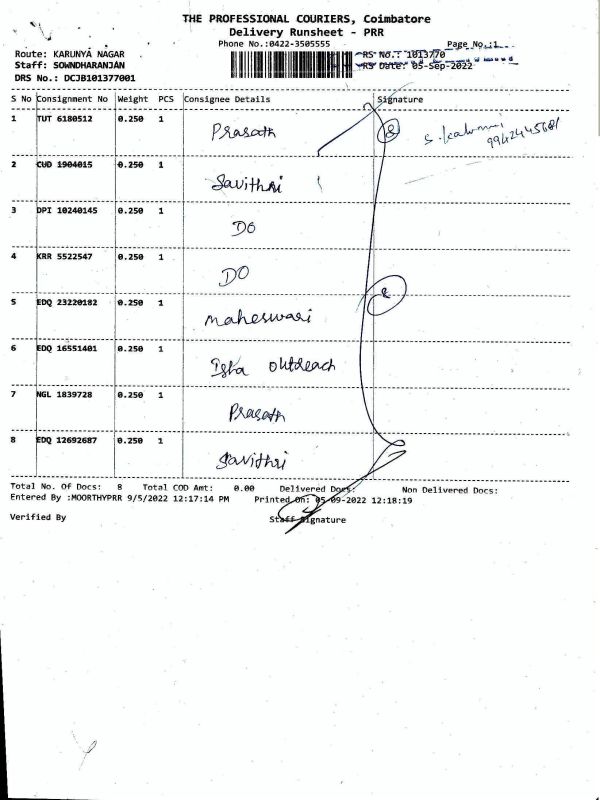 THE PROFESSIONAL COURIERS, Coimbatore
Delivery Runsheet - PRR
Phone No.:0422-3505555 Page No.:1
Route: KARUNYA NAGAR RS No.: 1013770
Staff: SOWNDHARANJAN RS Date: 05-Sep-2022
DRS No.: DCJB101377001
S No Consignment No Weight PCS Consignee Details Signature
1 TUT 6180512 0.250 1 Prasath
2 CUD 1904015 0.250 1 Savithri
3 DPI 10240145 0.250 1 DO
4 KRR 5522547 0.250 1 DO
5 EDQ 23220182 0.250 1 Maheswari
6 EDQ 16551401 0.250 1 Isha Outreach
7 NGL 1839728 0.250 1 Prasath
8 EDQ 12692687 0.250 1 Savithri
Total No. Of Docs: 8 Total COD Amt: 0.00 Delivered Docs: Non Delivered Docs:
Entered By :MOORTHYPRR 9/5/2022 12:17:14 PM Printed On: 05-09-2022 12:18:19
Verified By Staff Signature